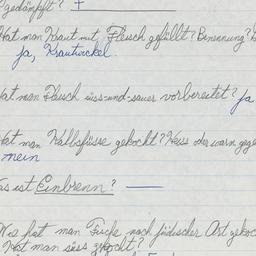 gedämpft? +
Hat man Kraut mit Fleisch gefüllt? Benennung?
ja, Krautwickel
Hat man Fleisch süss-und-sauer vorbereitet? ja
Hat man Kalbsfüsse gekocht? Heiss oder warm
nein
as ist Einbrenn? —
Wie hat man Fische nach jüdischer Art
Hat man süss gekocht?